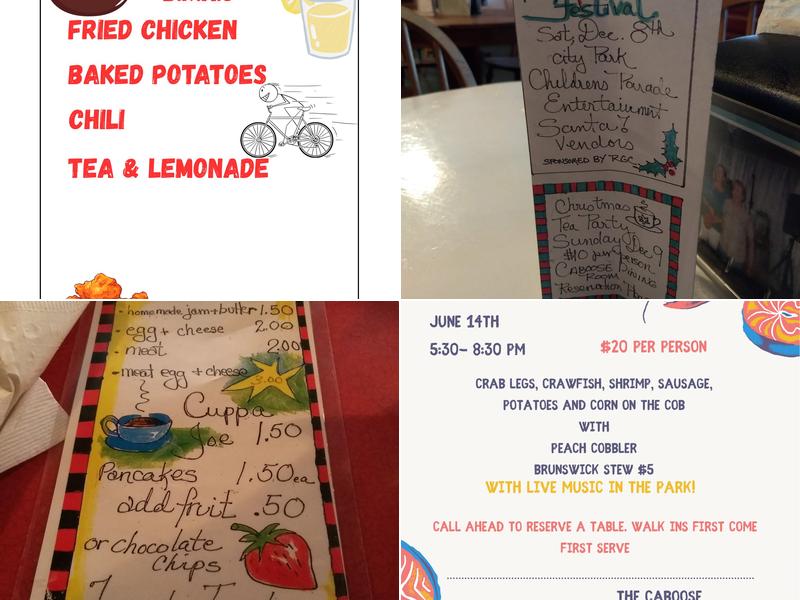 FRIED CHICKEN
BAKED POTATOES
CHILI
TEA & LEMONADE
Festival
Sat, Dec. 8th
city Park
Childrens Parade
Entertainment
Santa &
Vendors
SPONSORED BY RGC
Christmas
Tea Party
Sunday Dec 9
$10 per person
CABOOSE DINING
ROOM
Reservation
- homemade jam+butter 1.50
- egg + cheese 2.00
- meat 2.00
- meat egg + cheese 3.00
Cuppa
Joe 1.50
Pancakes 1.50ea
add fruit .50
or chocolate
Chips
JUNE 14TH
5:30- 8:30 PM
$20 PER PERSON
CRAB LEGS, CRAWFISH, SHRIMP, SAUSAGE,
POTATOES AND CORN ON THE COB
WITH
PEACH COBBLER
BRUNSWICK STEW $5
WITH LIVE MUSIC IN THE PARK!
CALL AHEAD TO RESERVE A TABLE. WALK INS FIRST COME
FIRST SERVE
THE CABOOSE